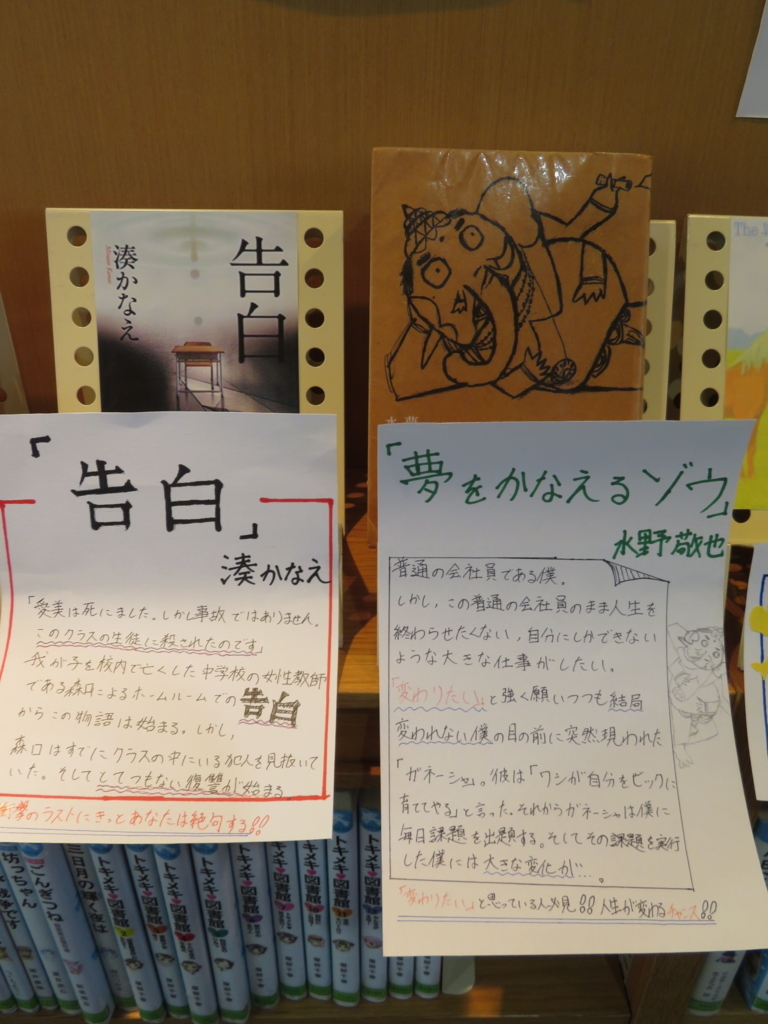 告白
湊かなえ
「告白」
湊かなえ
「愛美は死にました。しかし事故ではありません。
このクラスの生徒に殺されたのです」
我が子を校内で亡くした中学校の女性教師
である森口によるホームルームでの告白
からこの物語は始まる。しかし、
森口はすでにクラスの中にいる犯人を見抜いて
いた。そしてとてつもない復讐が始まる
衝撃のラストにきっとあなたは絶句する!!
「夢をかなえるゾウ」
水野敬也
普通の会社員である僕。
しかし、この普通の会社員のまま人生を
終わらせたくない、自分にしかできない
ような大きな仕事がしたい。
「変わりたい。」と強く願いつつも結局
変われない僕の目の前に突然現われた
「ガネーシャ」。彼は「ワシが自分をビックに
育ててやる」と言った。それからガネーシャは僕に
毎日課題を出題する。そしてその課題を実行
した僕には大きな変化が…。
「変わりたい。」と思っている人必見!!人生が変わるチャンス!!
坊っちゃん
ごんぎつね
三日月の輝く夜は
トキメキ図書館
トキメキ図書館
トキメキ図書館
トキメキ図書館
トキメキ図書館
トキメキ図書館
トキメキ図書館
トキメキ図書館